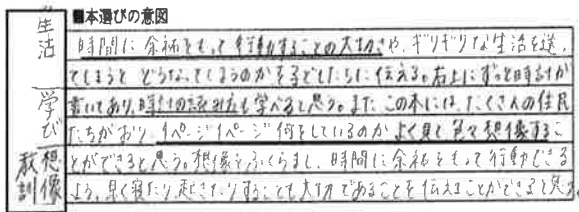 ■本選びの意図
生活
学び
想像
教訓
時間に余裕をもって行動することの大切さや、ギリギリな生活を送っ
てしまうとどうなってしまうのかを子どもたちに伝える。右上にずっと時計が
書いてあり、時計の読み方も学べると思う。また、この本には、たくさんの住民
たちがおり、1ページ1ページ何をしているのかよく見て色々想像するこ
とができると思う。想像をふくらまし、時間に余裕をもって行動できる
よう、早く寝たり、起きたりすることも大切であることを伝えることができると思う。